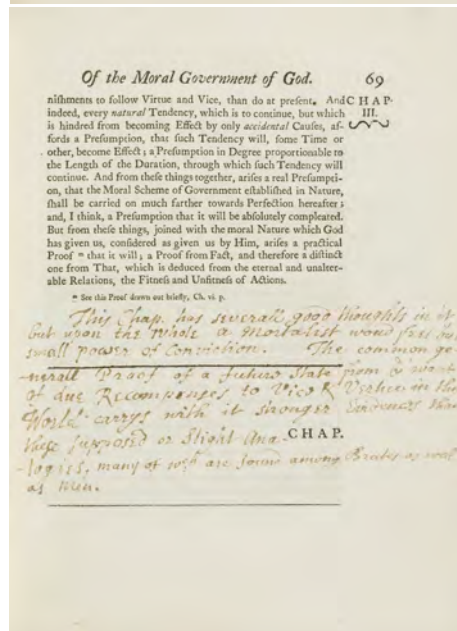 Of the Moral Government of God. 69
niſhments to follow Virtue and Vice, than do at preſent. And CHAP.
indeed, every natural Tendency, which is to continue, but which III.
is hindred from becoming Effect by only accidental Cauſes, af-
fords a Preſumption, that ſuch Tendency will, ſome Time or
other, become Effect; a Preſumption in Degree proportionable to
the Length of the Duration, through which ſuch Tendency will
continue. And from theſe things together, ariſes a real Preſumpti-
on, that the Moral Scheme of Government eſtabliſhed in Nature,
ſhall be carried on much farther towards Perfection hereafter;
and, I think, a Preſumption that it will be abſolutely compleated.
But from theſe things, joined with the moral Nature which God
has given us, conſidered as given us by Him, ariſes a practical
Proof that it will; a Proof from Fact, and therefore a diſtinct
one from That, which is deduced from the eternal and unalter-
able Relations, the Fitneſs and Unfitneſs of Actions.
See this Proof drawn out briefly, Ch. vi. p.
This Chap. has severall good thoughts in it
but upon the whole a Mortalist woud
small power of Conviction. The common ge-
nerall Proof of a future State from want
of due Recompenses to Vice & Vertue in the
World carrys with it stronger Evidences than
these supposed or Slight Ana CHAP.
logies, many of are found among Brutes as well
as Men.